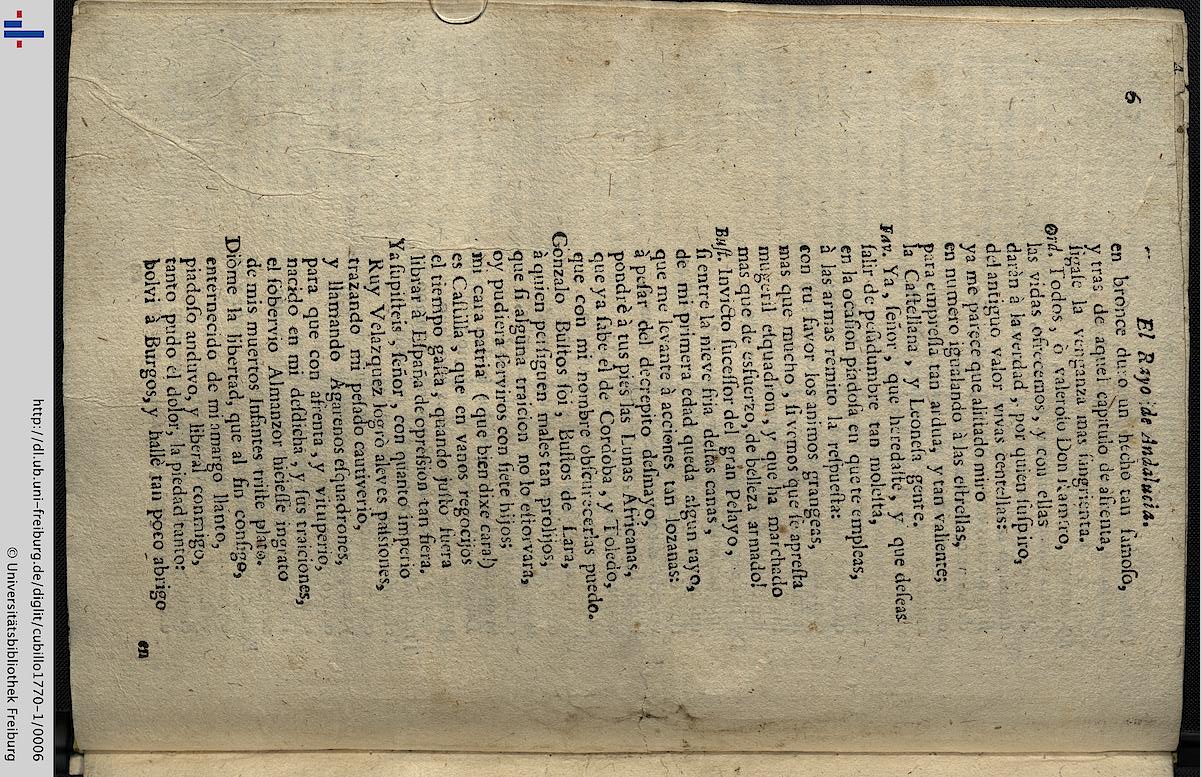 6
El Rayo de Andalucia.
en bronce duro un hecho tan famoso,
y tras de aquel capitulo de afrenta,
sigase la venganza mas sangrienta.
Ord. Todos, ò valeroso Don Ramiro,
las vidas ofrecemos, y con ellas
daràn à la verdad, por quien suspiro,
del antiguo valor vivas centellas:
ya me parece que alistado miro
en numero igualando à las estrellas,
para empressa tan ardua, y tan valiente;
la Castellana, y Leonesa gente.
Fav. Ya, señor, que heredaste, y que deseas
salir de pesadumbre tan molesta,
en la ocasion piadosa en que te empleas,
à las armas remito la respuesta:
con tu favor los animos grangeas,
mas que mucho, si vemos que se apresta
mugeril esquadron, y que ha marchado
mas que de esfuerzo, de belleza armado!
Bust. Invicto sucessor del gran Pelayo,
si entre la nieve fria destas canas,
de mi primera edad queda algun rayo,
que me levante à acciones tan lozanas:
à pesar del decrepito desmayo,
pondrè à tus pies las Lunas Africanas,
que ya sabe el de Cordoba, y Toledo,
que con mi nombre obscurecerlas puedo.
Gonzalo Bustos soi, Bustos de Lara,
à quien persiguen males tan prolixos,
que si alguna traicion no lo estorvara,
oy pudiera serviros con siete hijos;
mi cara patria (que bien dixe cara!)
es Castilla, que en vanos regocijos
el tiempo gasta, quando justo fuera
librar à España de opresion tan fiera.
Ya supisteis, señor, con quanto imperio
Ruy Velazquez logrò aleves passiones,
trazando mi pesado cautiverio,
y llamando Agarenos esquadrones,
para que con afrenta, y vituperio,
nacido en mi desdicha, y sus traiciones,
el sobervio Almanzor hiciesse ingrato
de mis muertos Infantes triste plato.
Diòme la libertad, que al fin consigo,
enternecido de mi amargo llanto,
piadoso anduvo, y liberal conmigo,
tanto pudo el dolor, la piedad tanto:
bolvi à Burgos, y hallè tan poco abrigo
en
http://dl.ub.uni-freiburg.de/diglit/cubillo1770-1/0006
© Universitätsbibliothek Freiburg